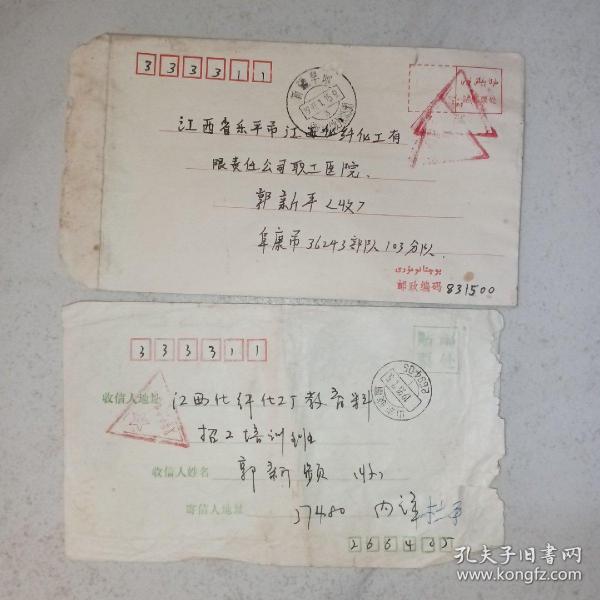 333311
江西省乐平市江西化纤化工有
限责任公司职工医院.
郭新平<收>
阜康市36243部队103分队.
邮政编码 831500
333311
贴邮票处
收信人地址 江西化纤化工厂教育科
招工培训班
收信人姓名 郭新 (收)
寄信人地址 37480 内详
266405
孔夫子旧书网
www.kongfz.com